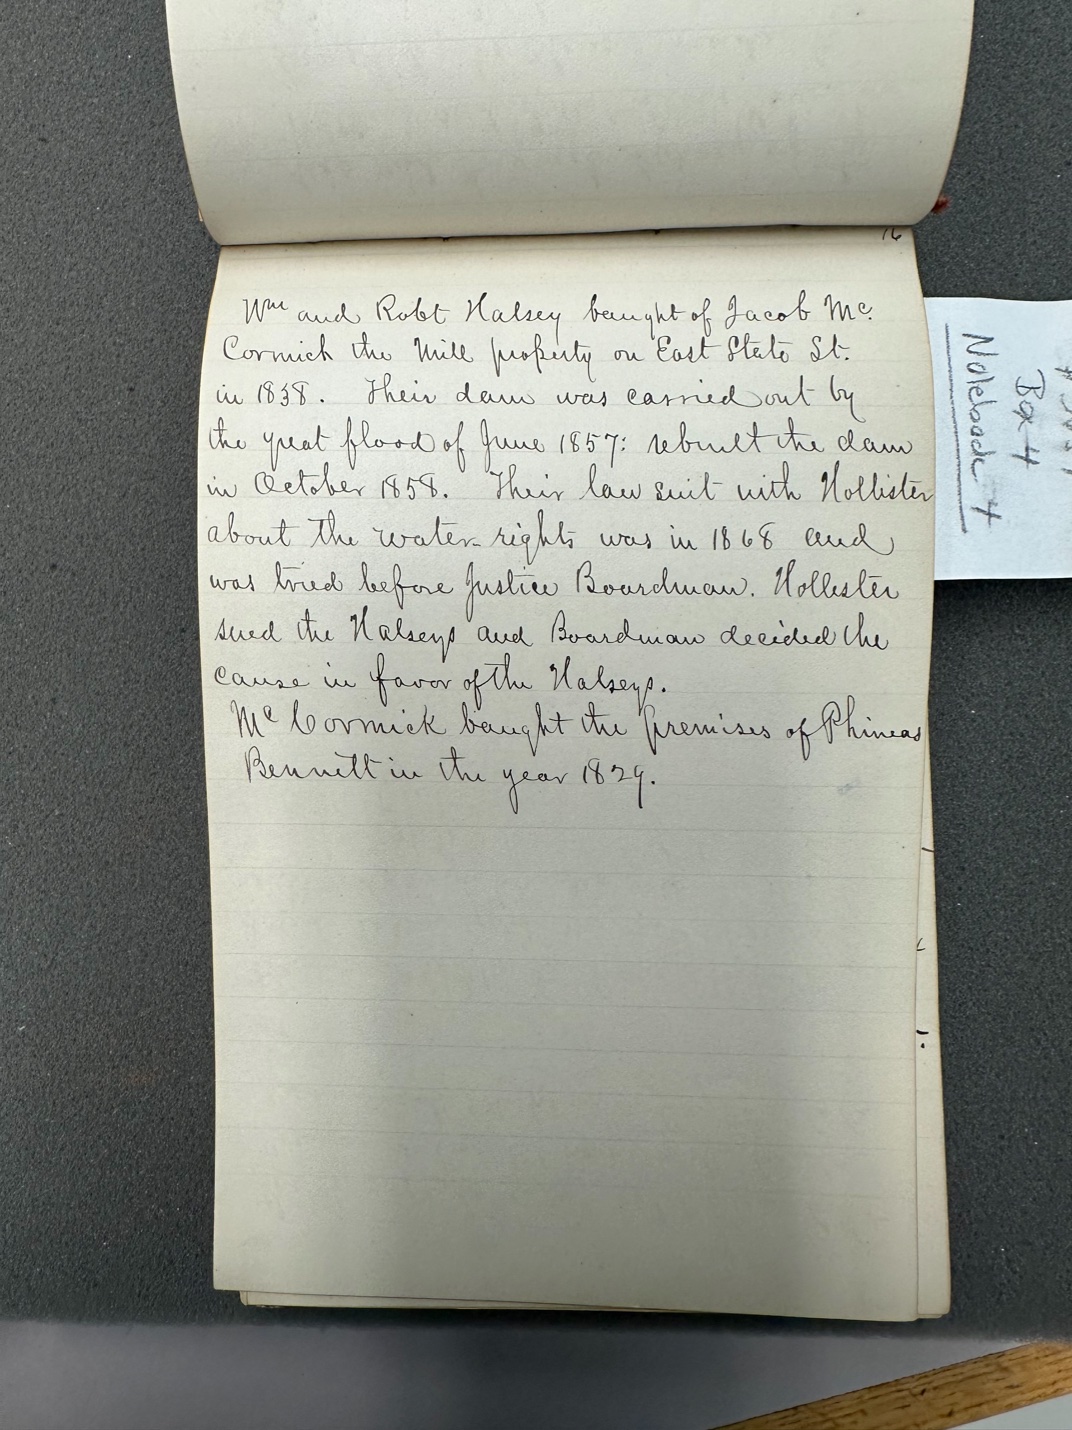 16
Wm and Robt Halsey baught of Jacob Mc.
Cormick the Mill property on East State St.
in 1838. Their dam was carried out by
the great flood of June 1857: rebuilt the dam
in October 1858. Their law suit with Hollister
about the water-rights was in 1868 and
was tried before Justice Boardman. Hollister
sued the Halseys and Boardman decided the
cause in favor of the Halseys.
Mc Cormick baught the premises of Phineas
Bennett in the year 1829.
Box 4
Notebook 4